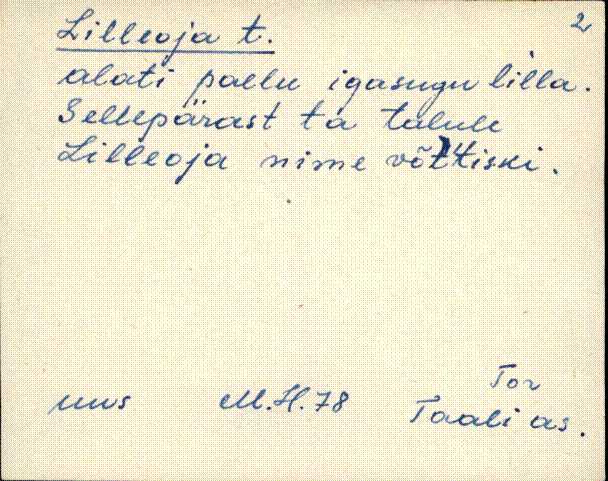 2
Lilleoja t.
alati pallu igasugu lilla.
Sellepärast ta talule
Lilleoja nime võttiski.
Tor
uus M.H.78 Taali as.